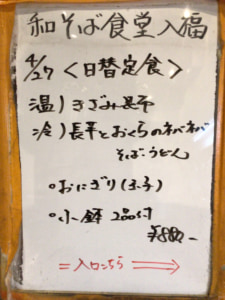 和そば食堂入福
4/27 <日替定食>
温)きざみ昆布
冷)長芋とおくらのネバネバ
そば・うどん
○おにぎり
○小鉢 2品付
¥880-
=入口こちら⇒